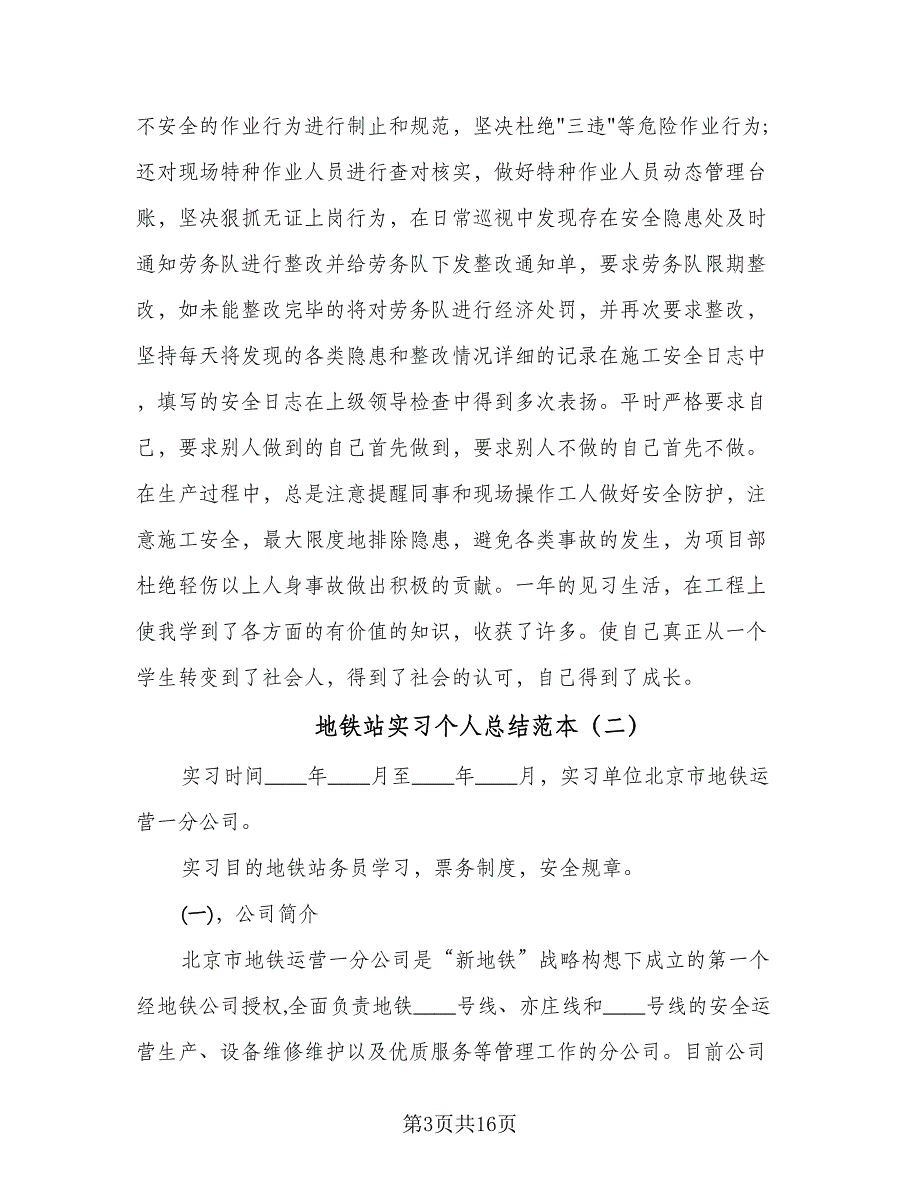 不安全的作业行为进行制止和规范，坚决杜绝"三违"等危险作业行为;
还对现场特种作业人员进行查对核实，做好特种作业人员动态管理台
账，坚决狠抓无证上岗行为，在日常巡视中发现存在安全隐患处及时
通知劳务队进行整改并给劳务队下发整改通知单，要求劳务队限期整
改，如未能整改完毕的将对劳务队进行经济处罚，并再次要求整改，
坚持每天将发现的各类隐患和整改情况详细的记录在施工安全日志中
，填写的安全日志在上级领导检查中得到多次表扬。平时严格要求自
己，要求别人做到的自己首先做到，要求别人不做的自己首先不做。
在生产过程中，总是注意提醒同事和现场操作工人做好安全防护，注
意施工安全，最大限度地排除隐患，避免各类事故的发生，为项目部
杜绝轻伤以上人身事故做出积极的贡献。一年的见习生活，在工程上
使我学到了各方面的有价值的知识，收获了许多。使自己真正从一个
学生转变到了社会人，得到了社会的认可，自己得到了成长。
地铁站实习个人总结范本（二）
实习时间____年____月至____年____月，实习单位北京市地铁运
营一分公司。
实习目的地铁站务员学习，票务制度，安全规章。
(一)，公司简介
北京市地铁运营一分公司是“新地铁”战略构想下成立的第一个
经地铁公司授权,全面负责地铁____号线、亦庄线和____号线的安全运
营生产、设备维修维护以及优质服务等管理工作的分公司。目前公司
第3页共16页